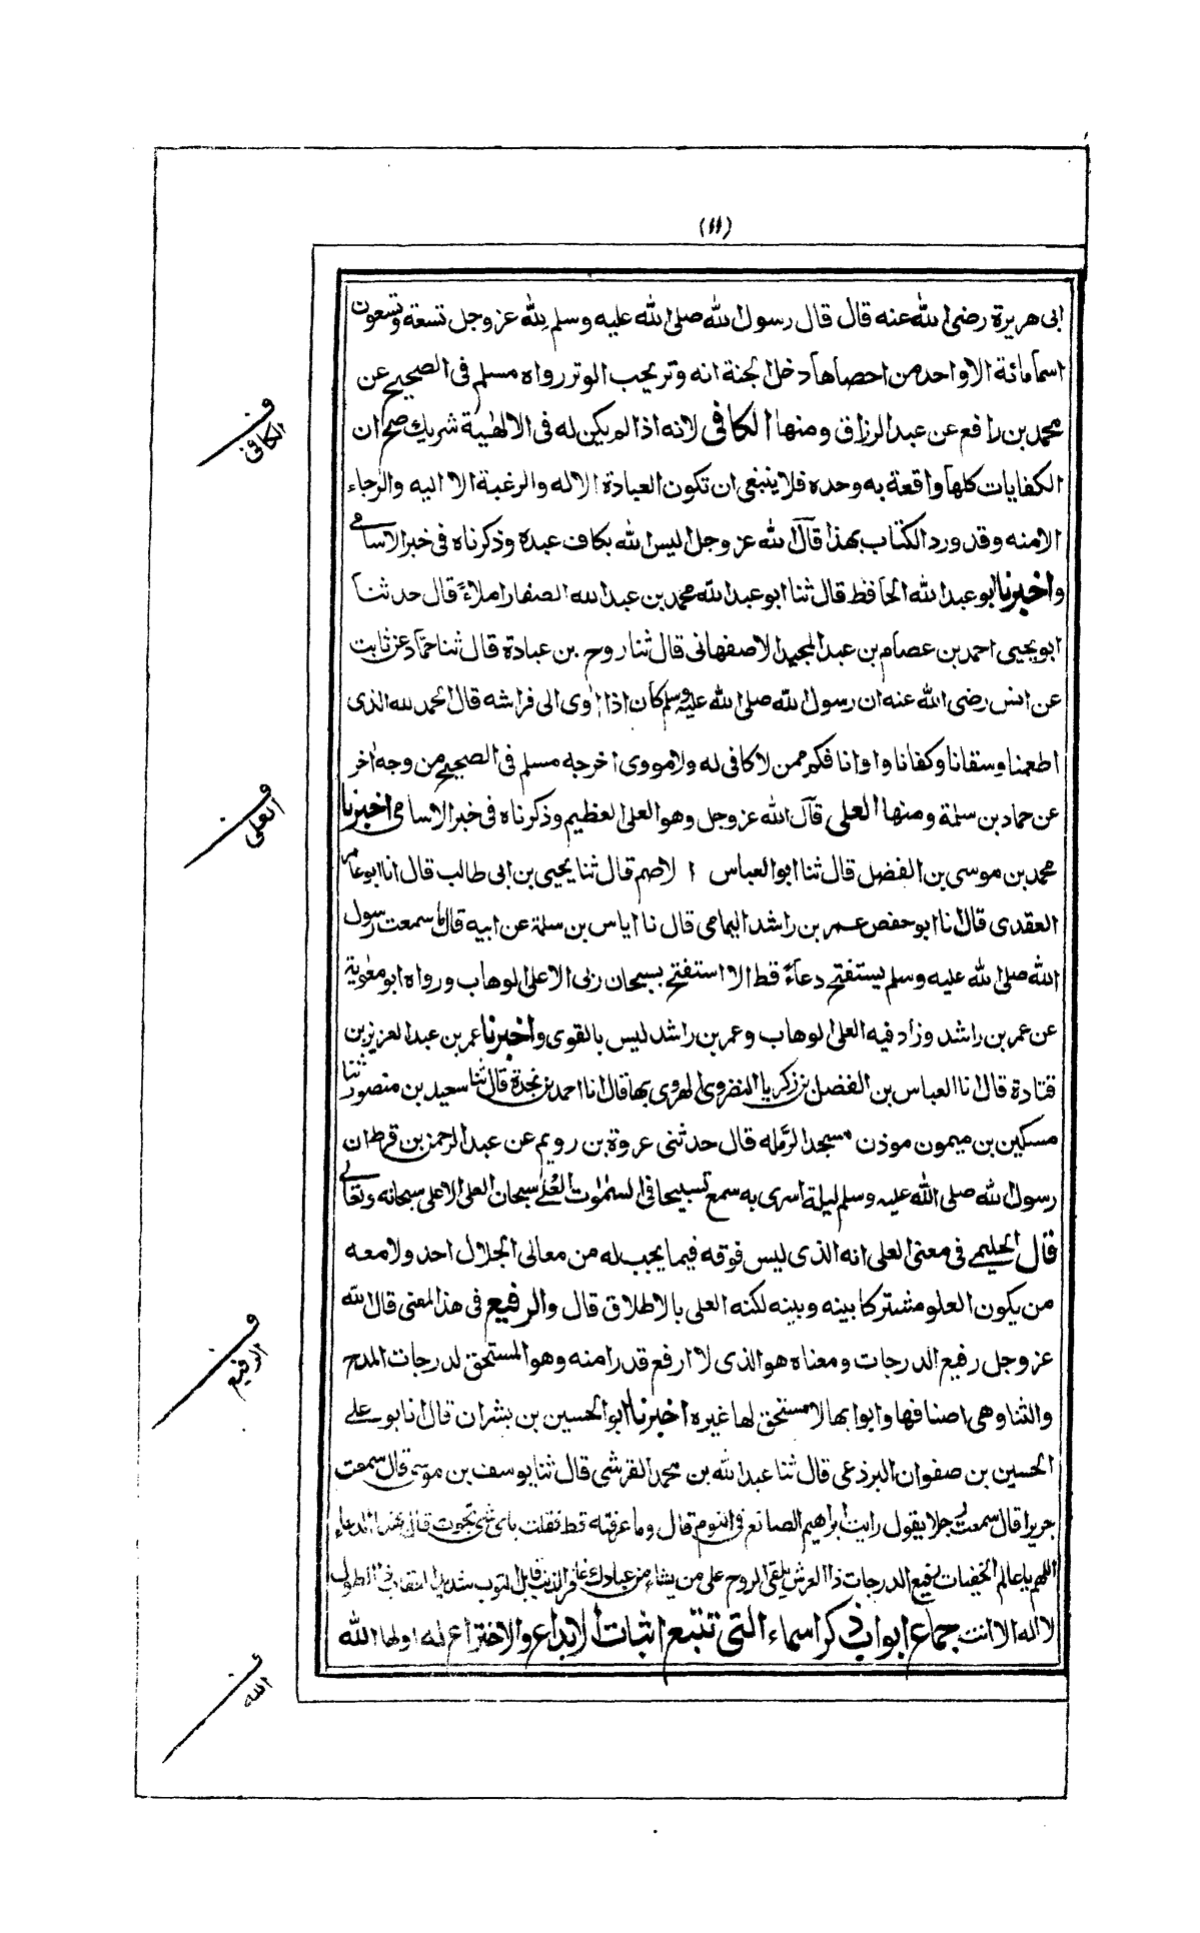 (١١)
ابى هريرة رضى الله عنه قال قال رسول الله صلى الله عليه وسلم لله عز وجل تسعة وتسعون
اسما مائة الا واحد من احصاها دخل الجنة انه وتر يحب الوتر رواه مسلم فى الصحيح عن
محمد بن رافع عن عبد الرزاق ومنها الكافى لانه اذا لم يكن له فى الالهية شريك صح ان
الكافى
الكفايات كلها واقعة به وحده فلا ينبغى ان تكون العبادة الا له والرغبة الا اليه والرجاء
الا منه وقد ورد الكتاب بهذا قال الله عز وجل اليس الله بكاف عبده وذكرناه فى خبر الاسامى
واخبرنا ابو عبد الله الحافظ قال ثنا ابو عبد الله محمد بن عبد الله الصفار املاءً قال حدثنا
ابو يحيى احمد بن عصام بن عبد المجيد الاصفهانى قال ثنا روح بن عبادة قال ثنا حماد عن ثابت
عن انس رضى الله عنه ان رسول الله صلى الله عليه وسلم كان اذا اوى الى فراشه قال الحمد لله الذى
اطعمنا وسقانا وكفانا واوانا فكم ممن لا كافى له ولا مووى اخرجه مسلم فى الصحيح من وجه اخر
عن حماد بن سلمة ومنها العلى قال الله عز وجل وهو العلى العظيم وذكرناه فى خبر الاسامى اخبرنا
العلى
محمد بن موسى بن الفضل قال ثنا ابو العباس الاصم قال ثنا يحيى بن ابى طالب قال انا ابو عامر
العقدى قال انا ابو حفص عمر بن راشد اليمامى قال نا اياس بن سلمة عن ابيه قال ما سمعت رسول
الله صلى الله عليه وسلم يستفتح دعاءً قط الا استفتح بسبحان ربى الاعلى الوهاب ورواه ابو معٰوية
عن عمر بن راشد وزاد فيه العلى الوهاب وعمر بن راشد ليس بالقوى واخبرنا عمر بن عبد العزيز بن
قتادة قال انا العباس بن الفضل بن زكريا النضروى الهروى بها قال انا احمد بن نجدة قال ثنا سعيد بن منصور ثنا
مسكين بن ميمون موذن مسجد الرمله قال حدثنى عروة بن رويم عن عبد الرحمن بن قرط ان
رسول الله صلى الله عليه وسلم ليلة اسرى به سمع تسبيحا فى السمٰوات العُلى سبحان العلى الاعلى سبحانه وتعالى
قال الحليمى فى معنى العلى انه الذى ليس فوقه فيما يجب له من معالى الجلال احد ولا معه
من يكون العلو مشتركا بينه وبينه لكنه العلى بالاطلاق قال والرفيع فى هذا المعنى قال الله
الرفيع
عز وجل رفيع الدرجات ومعناه هو الذى لا ارفع قدرا منه وهو المستحق لدرجات المدح
والثنا وهى اصنافها وابوابها لا مستحق لها غيره اخبرنا ابو الحسين بن بشران قال انا بو على
الحسين بن صفوان البرذعى قال ثنا عبد الله بن محمد القرشى قال ثنا يوسف بن موسى قال سمعت
جريرا قال سمعت رجلا يقول رايت ابراهيم الصائغ فى النوم قال وما عرفته قط فقلت باى شى نجوت قال بهذا الدعاء
اللهم يا عالم الخفيات رفيع الدرجات ذا العرش يلقى الروح على من يشاء من عبادك غافر الذنب قابل التوب شديد العقاب ذا الطول
لا اله الا انت جماع ابواب ذكر اسماء التى تتبع اثبات الابداع والاختراع له اولها الله
الله